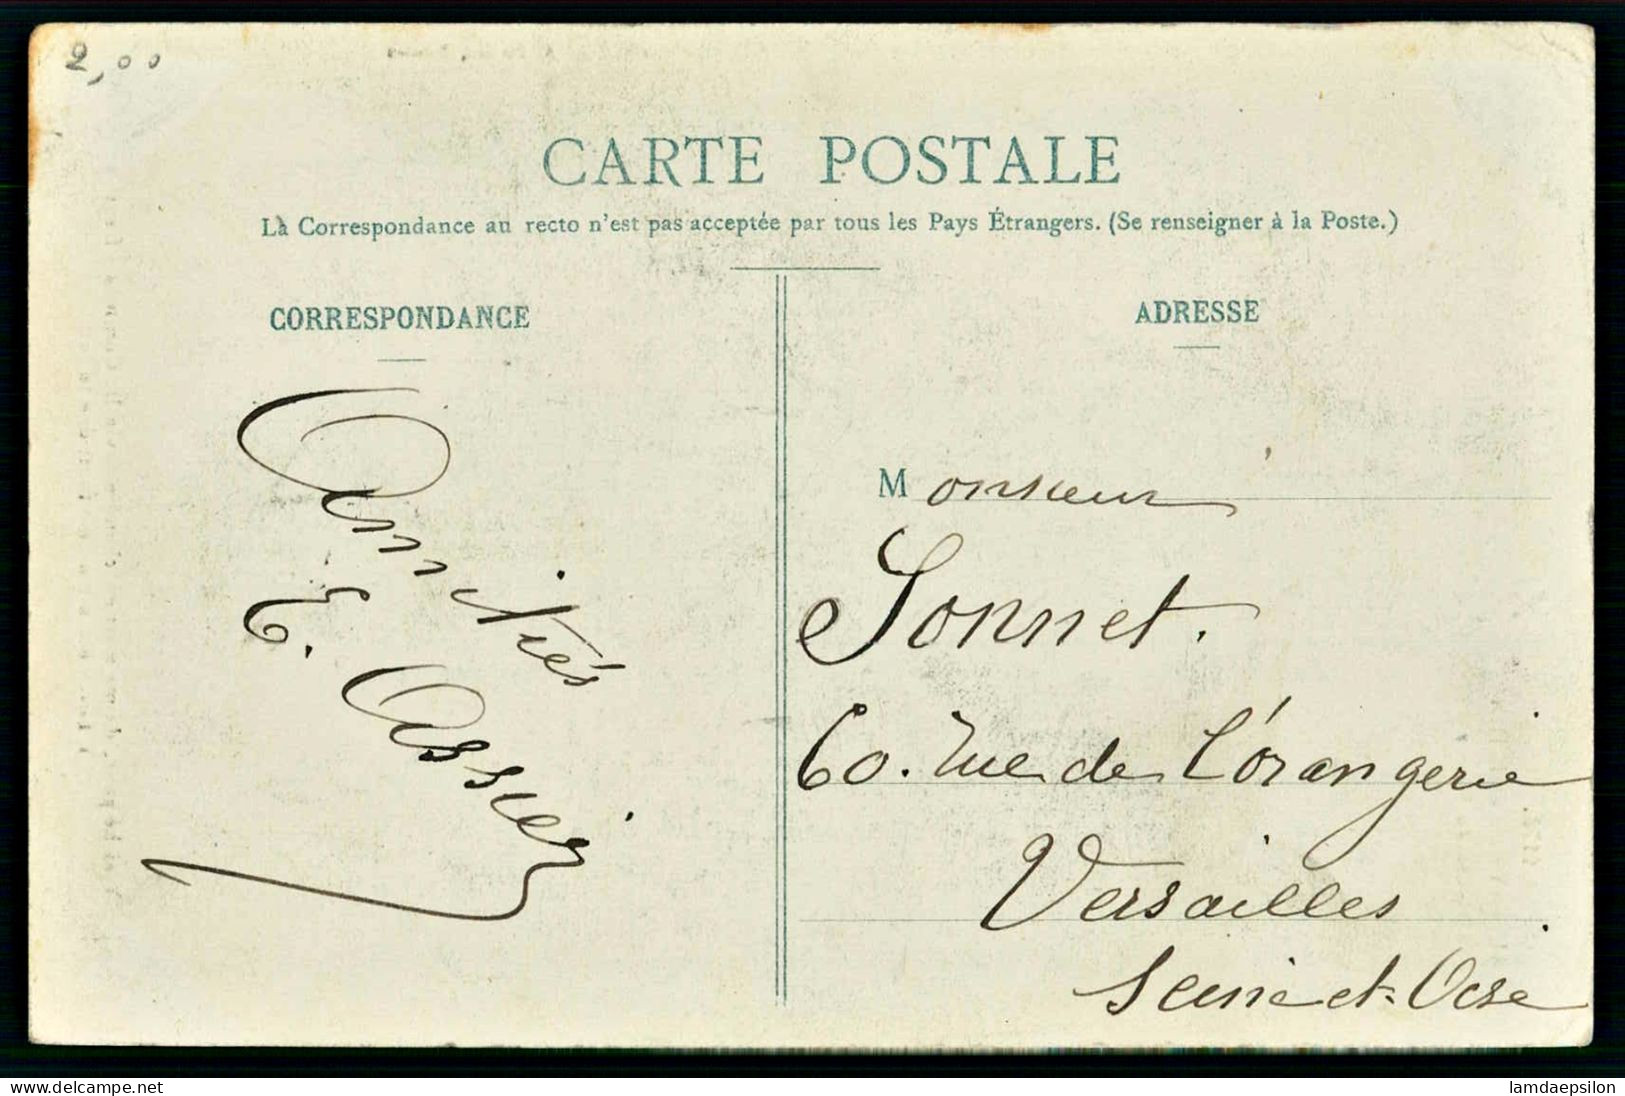 2,00
CARTE POSTALE
La Correspondance au recto n'est pas acceptée par tous les Pays Étrangers. (Se renseigner à la Poste.)
CORRESPONDANCE
Amitiés
E. Cassier
ADRESSE
Monsieur
Sonnet.
60. rue de l'orangerie
Versailles
Seine et Oise
www.delcampe.net
lamdaepsilon